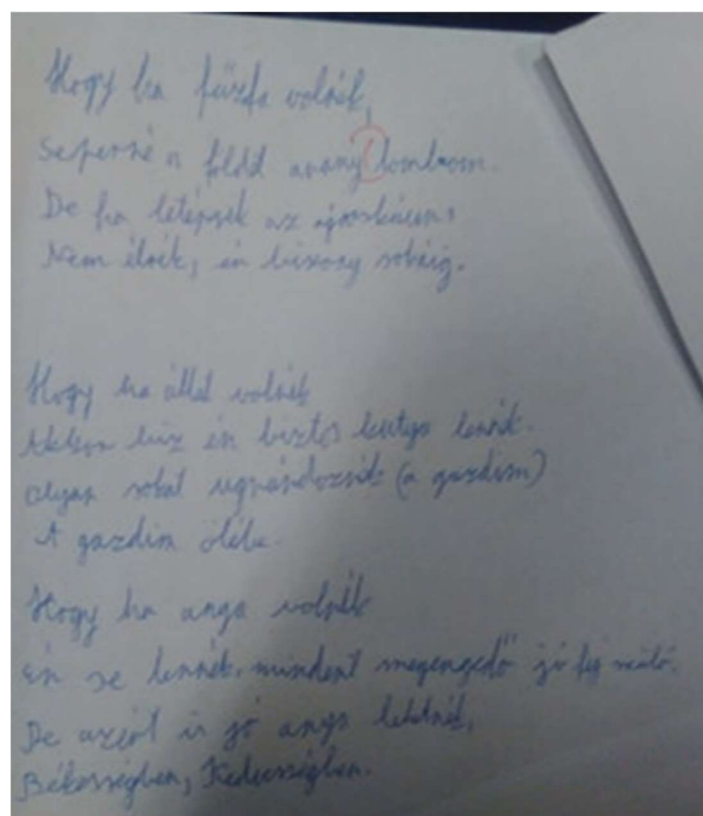 Hogy ha fűzfa volnék,
Seperné a földd arany lombrom.
De ha letépnék az
Nem élnék, én bizony sokáig.
Hogy ha állat volnék
én biztos kutya lennék.
olyan sokat ugrándoznék (a gazdim)
A gazdim ölébe.
Hogy ha anya volnék
Én se lennék, mindent megengedő jó fej szülő.
De azért is jó anya lehetnék,
Békességben, Kedvességben.